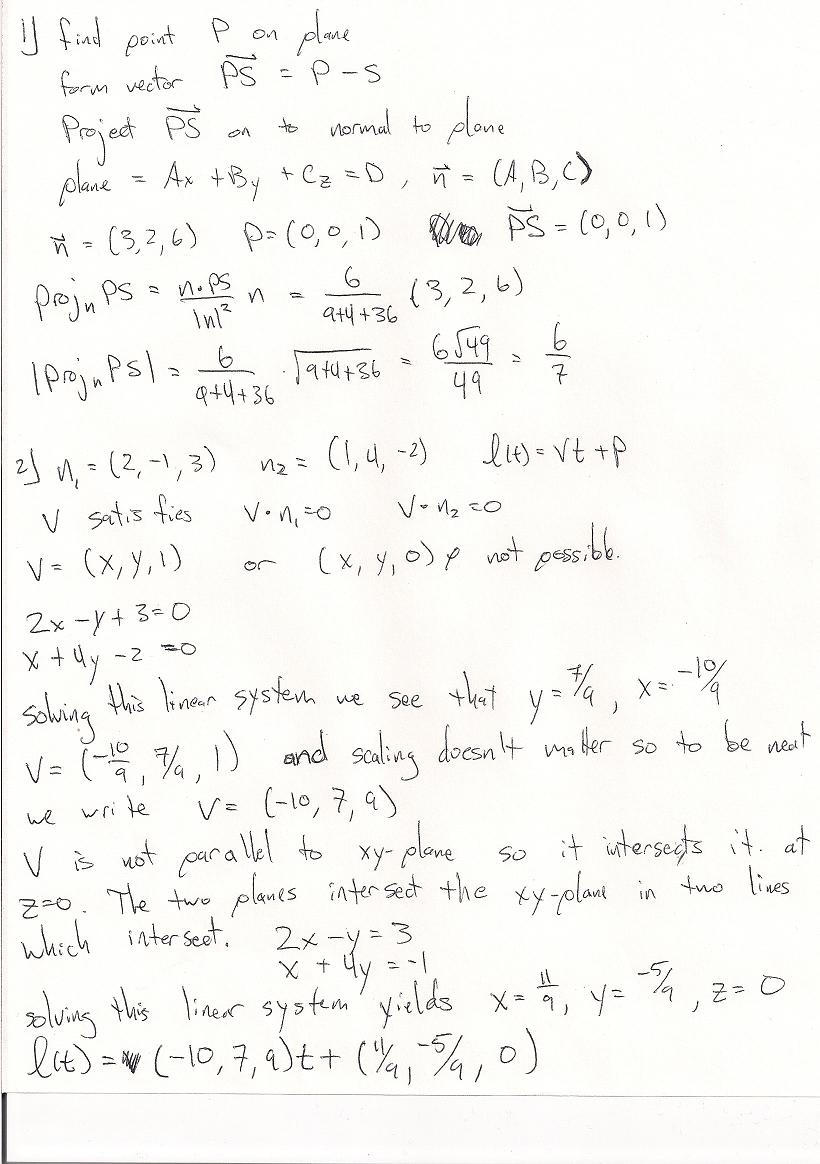 1) find point P on plane
form vector PS⃗ = P - S
Project PS⃗ on to normal to plane
plane = Ax + By + Cz = D , n⃗ = (A, B, C)
n⃗ = (3, 2, 6) P = (0, 0, 1) PS⃗ = (0, 0, 1)
Proj_n PS = n·PS/|n|² n = 6/(9+4+36) (3, 2, 6)
|Proj_n PS| = 6/(9+4+36) · √(9+4+36) = 6√49/49 = 6/7
2) n₁ = (2, -1, 3) n₂ = (1, 4, -2) l(t) = Vt + P
V satisfies V·n₁=0 V·n₂=0
V = (x, y, 1) or (x, y, 0) not possible.
2x - y + 3 = 0
x + 4y - 2 = 0
solving this linear system we see that y = 7/9, x = -10/9
V = (-10/9, 7/9, 1) and scaling doesn't matter so to be neat
we write V = (-10, 7, 9)
V is not parallel to xy-plane so it intersects it. at
z=0. The two planes intersect the xy-plane in two lines
which intersect. 2x - y = 3
x + 4y = -1
solving this linear system yields x = 11/9, y = -5/9, z = 0
l(t) = (-10, 7, 9)t + (11/9, -5/9, 0)